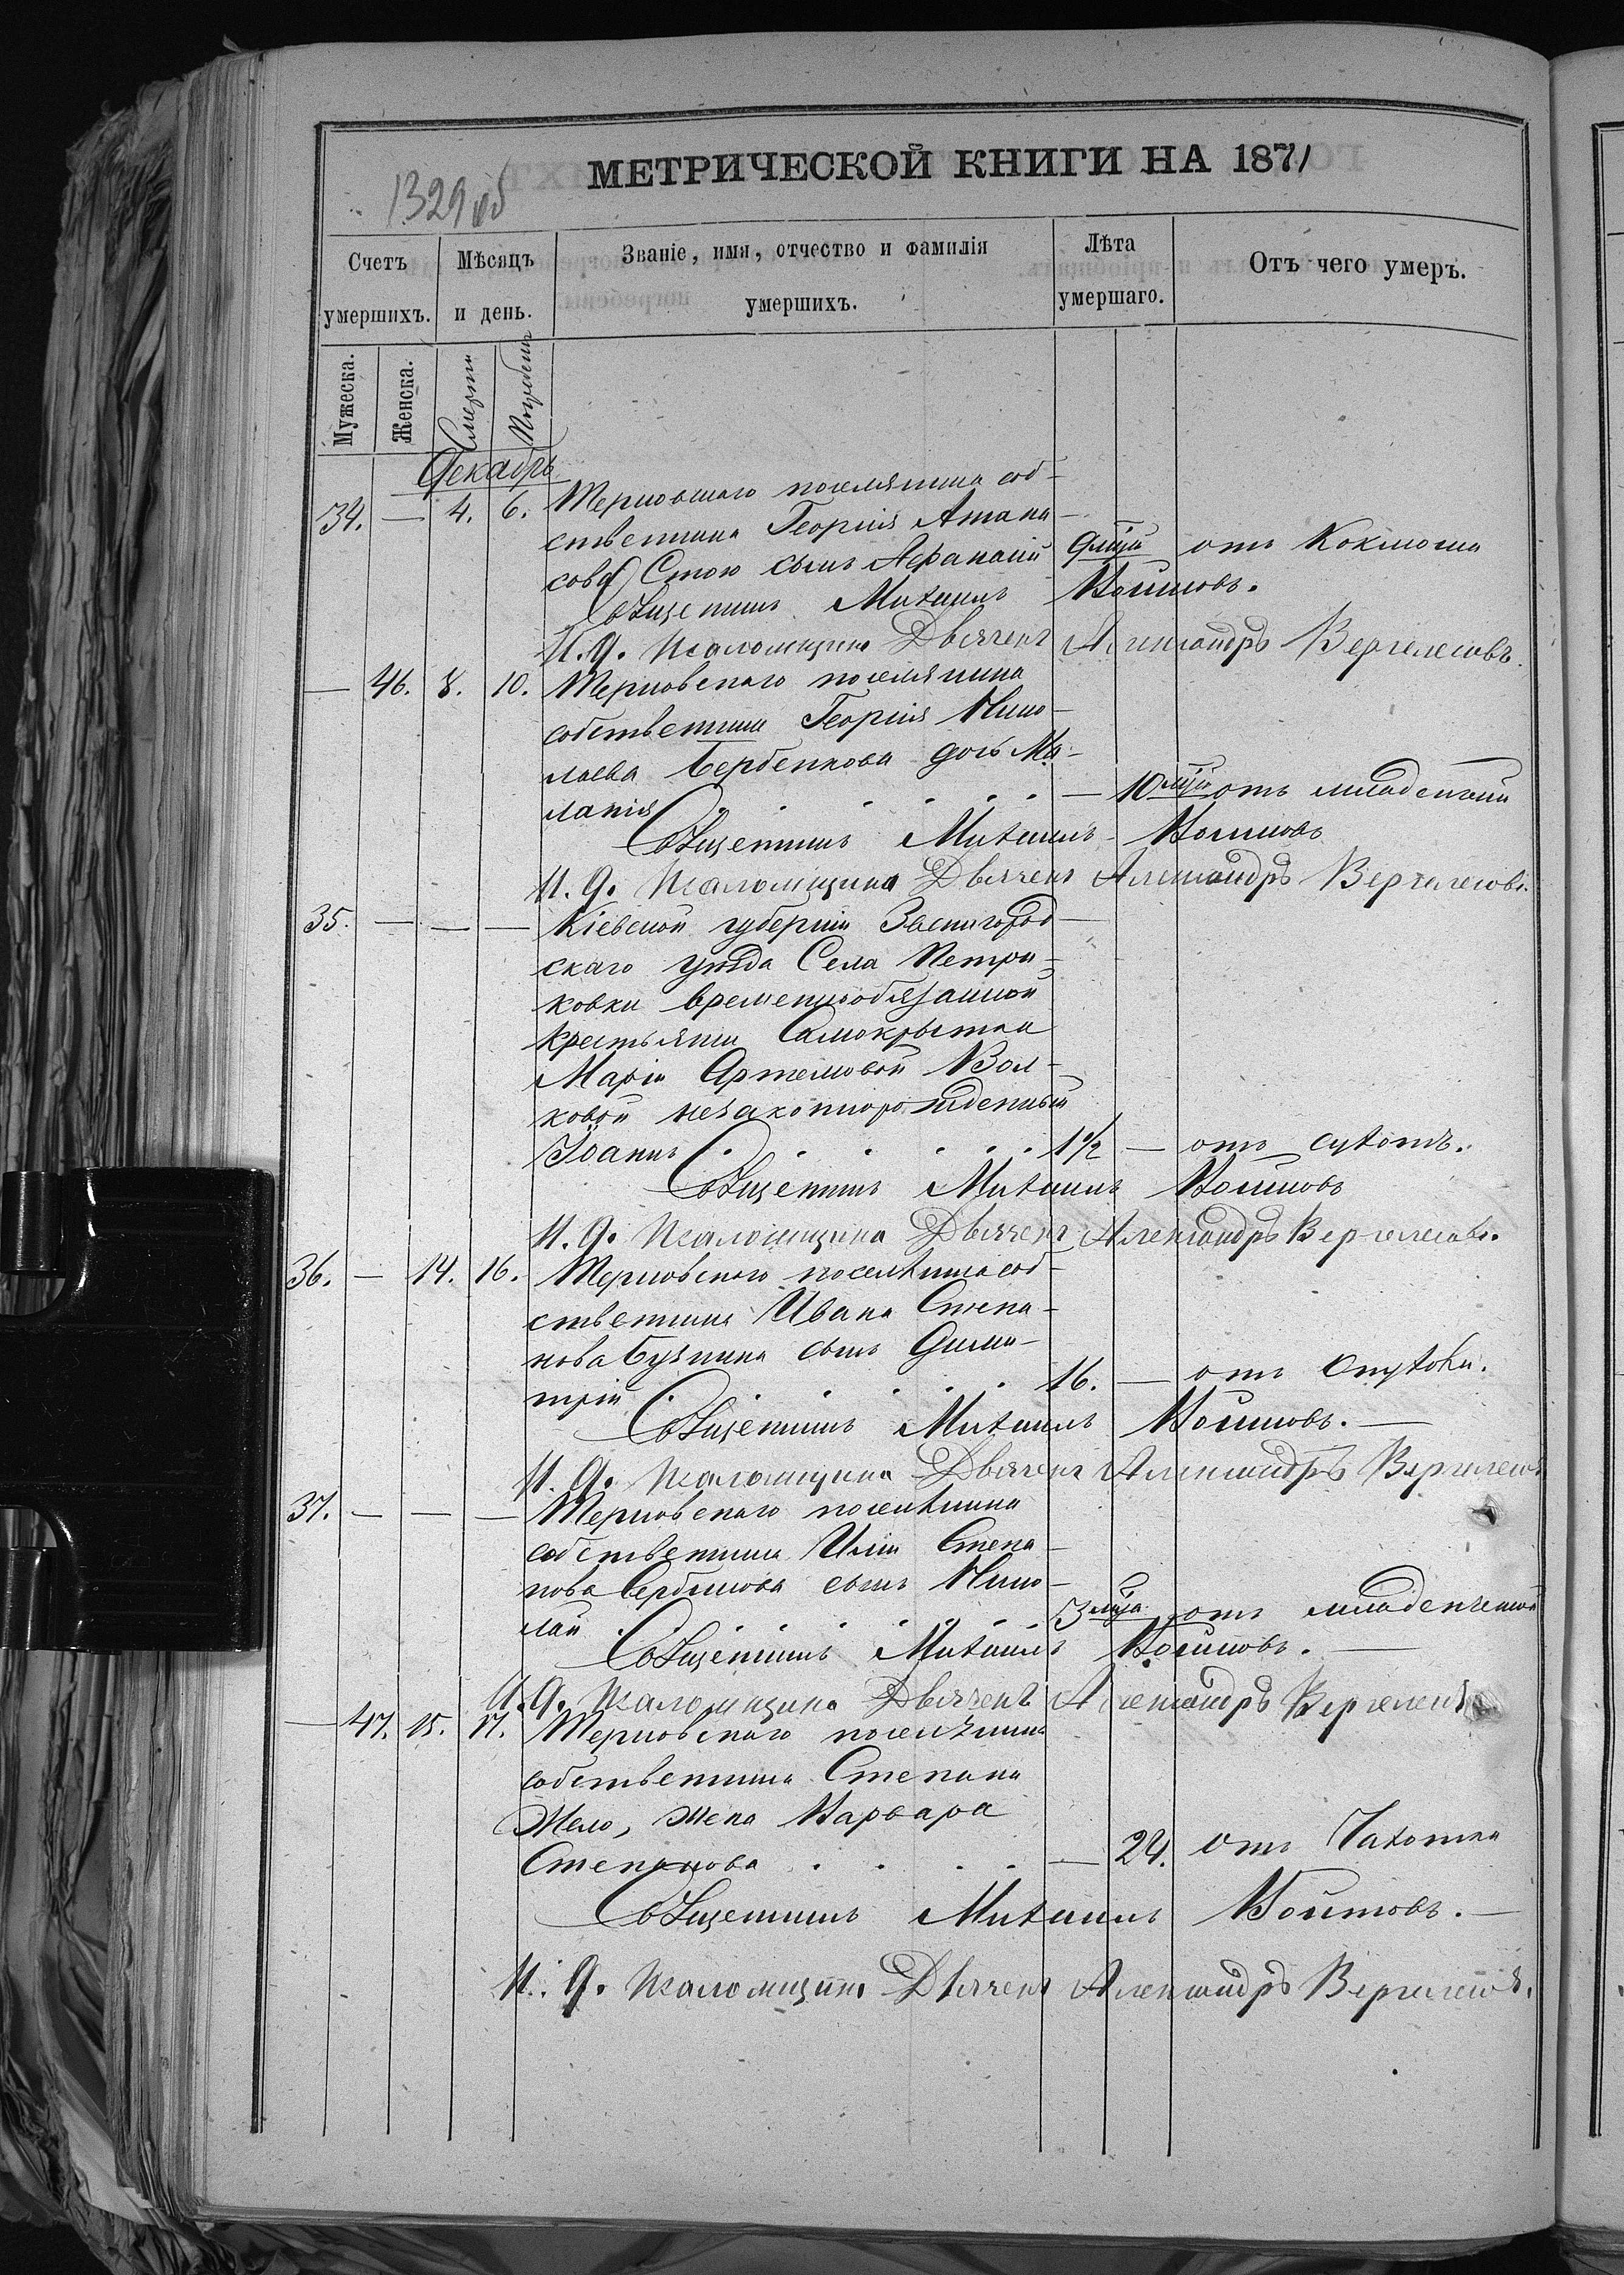 МЕТРИЧЕСКОЙ КНИГИ НА 1871
1329 об
Счетъ умершихъ.
Мѣсяцъ и день.
Званіе, имя, отчество и фамилія умершихъ.
Лѣта умершаго.
Отъ чего умеръ.
Мужеска.
Женска.
Смерти
Погребенія
Декабрь
34. — 4. 6. Терновскаго поселянина соб-
ственника Георгія Атана-
сова Стою сынъ Афанасій 9 мцы отъ Коклюша
Священникъ Михаилъ Войновъ.
И. д. Псаломщика Дьячекъ Александръ Вергелесовъ.
— 46. 8. 10. Терновскаго поселянина
собственника Георгія Нико-
лаева Бербенкова дочь Ма-
ланія . . . . . — 10 мцы отъ младенчий
Священникъ Михаилъ Войновъ
И. д. Псаломщика Дьячекъ Александръ Вергелесовъ.
35. — — — Кіевской губерніи Звенигород-
скаго уѣзда Села Петри-
ковки временнообязанной
крестьянки Самокрытки
Маріи Артемовой Вол-
ковой незаконнорожденный
Іоаннъ . . . . . 1½ — отъ сухотъ.
Священникъ Михаилъ Войновъ
И. д. Псаломщика Дьячекъ Александръ Вергелесовъ.
36. — 14. 16. Терновскаго поселянина соб-
ственника Ивана Степа-
нова Бузника сынъ Дими-
трій . . . . . 16. — отъ
Священникъ Михаилъ Войновъ. —
И. д. Псаломщика Дьячекъ Александръ Вергелесовъ
37. — — — Терновскаго поселянина
собственника Иліи Степа-
нова Сербинова сынъ Нико-
лай . . . . . 3 мца отъ младенческой
Священникъ Михаилъ Войновъ. —
И. д. Псаломщика Дьячекъ Александръ Вергелесовъ
— 47. 15. 17. Терновскаго поселянина
собственника Степана
Жело, жена Варвара
Степанова . . . . — 24. отъ Чахотки
Священникъ Михаилъ Войновъ. —
И. д. Псаломщика Дьячекъ Александръ Вергелесовъ.